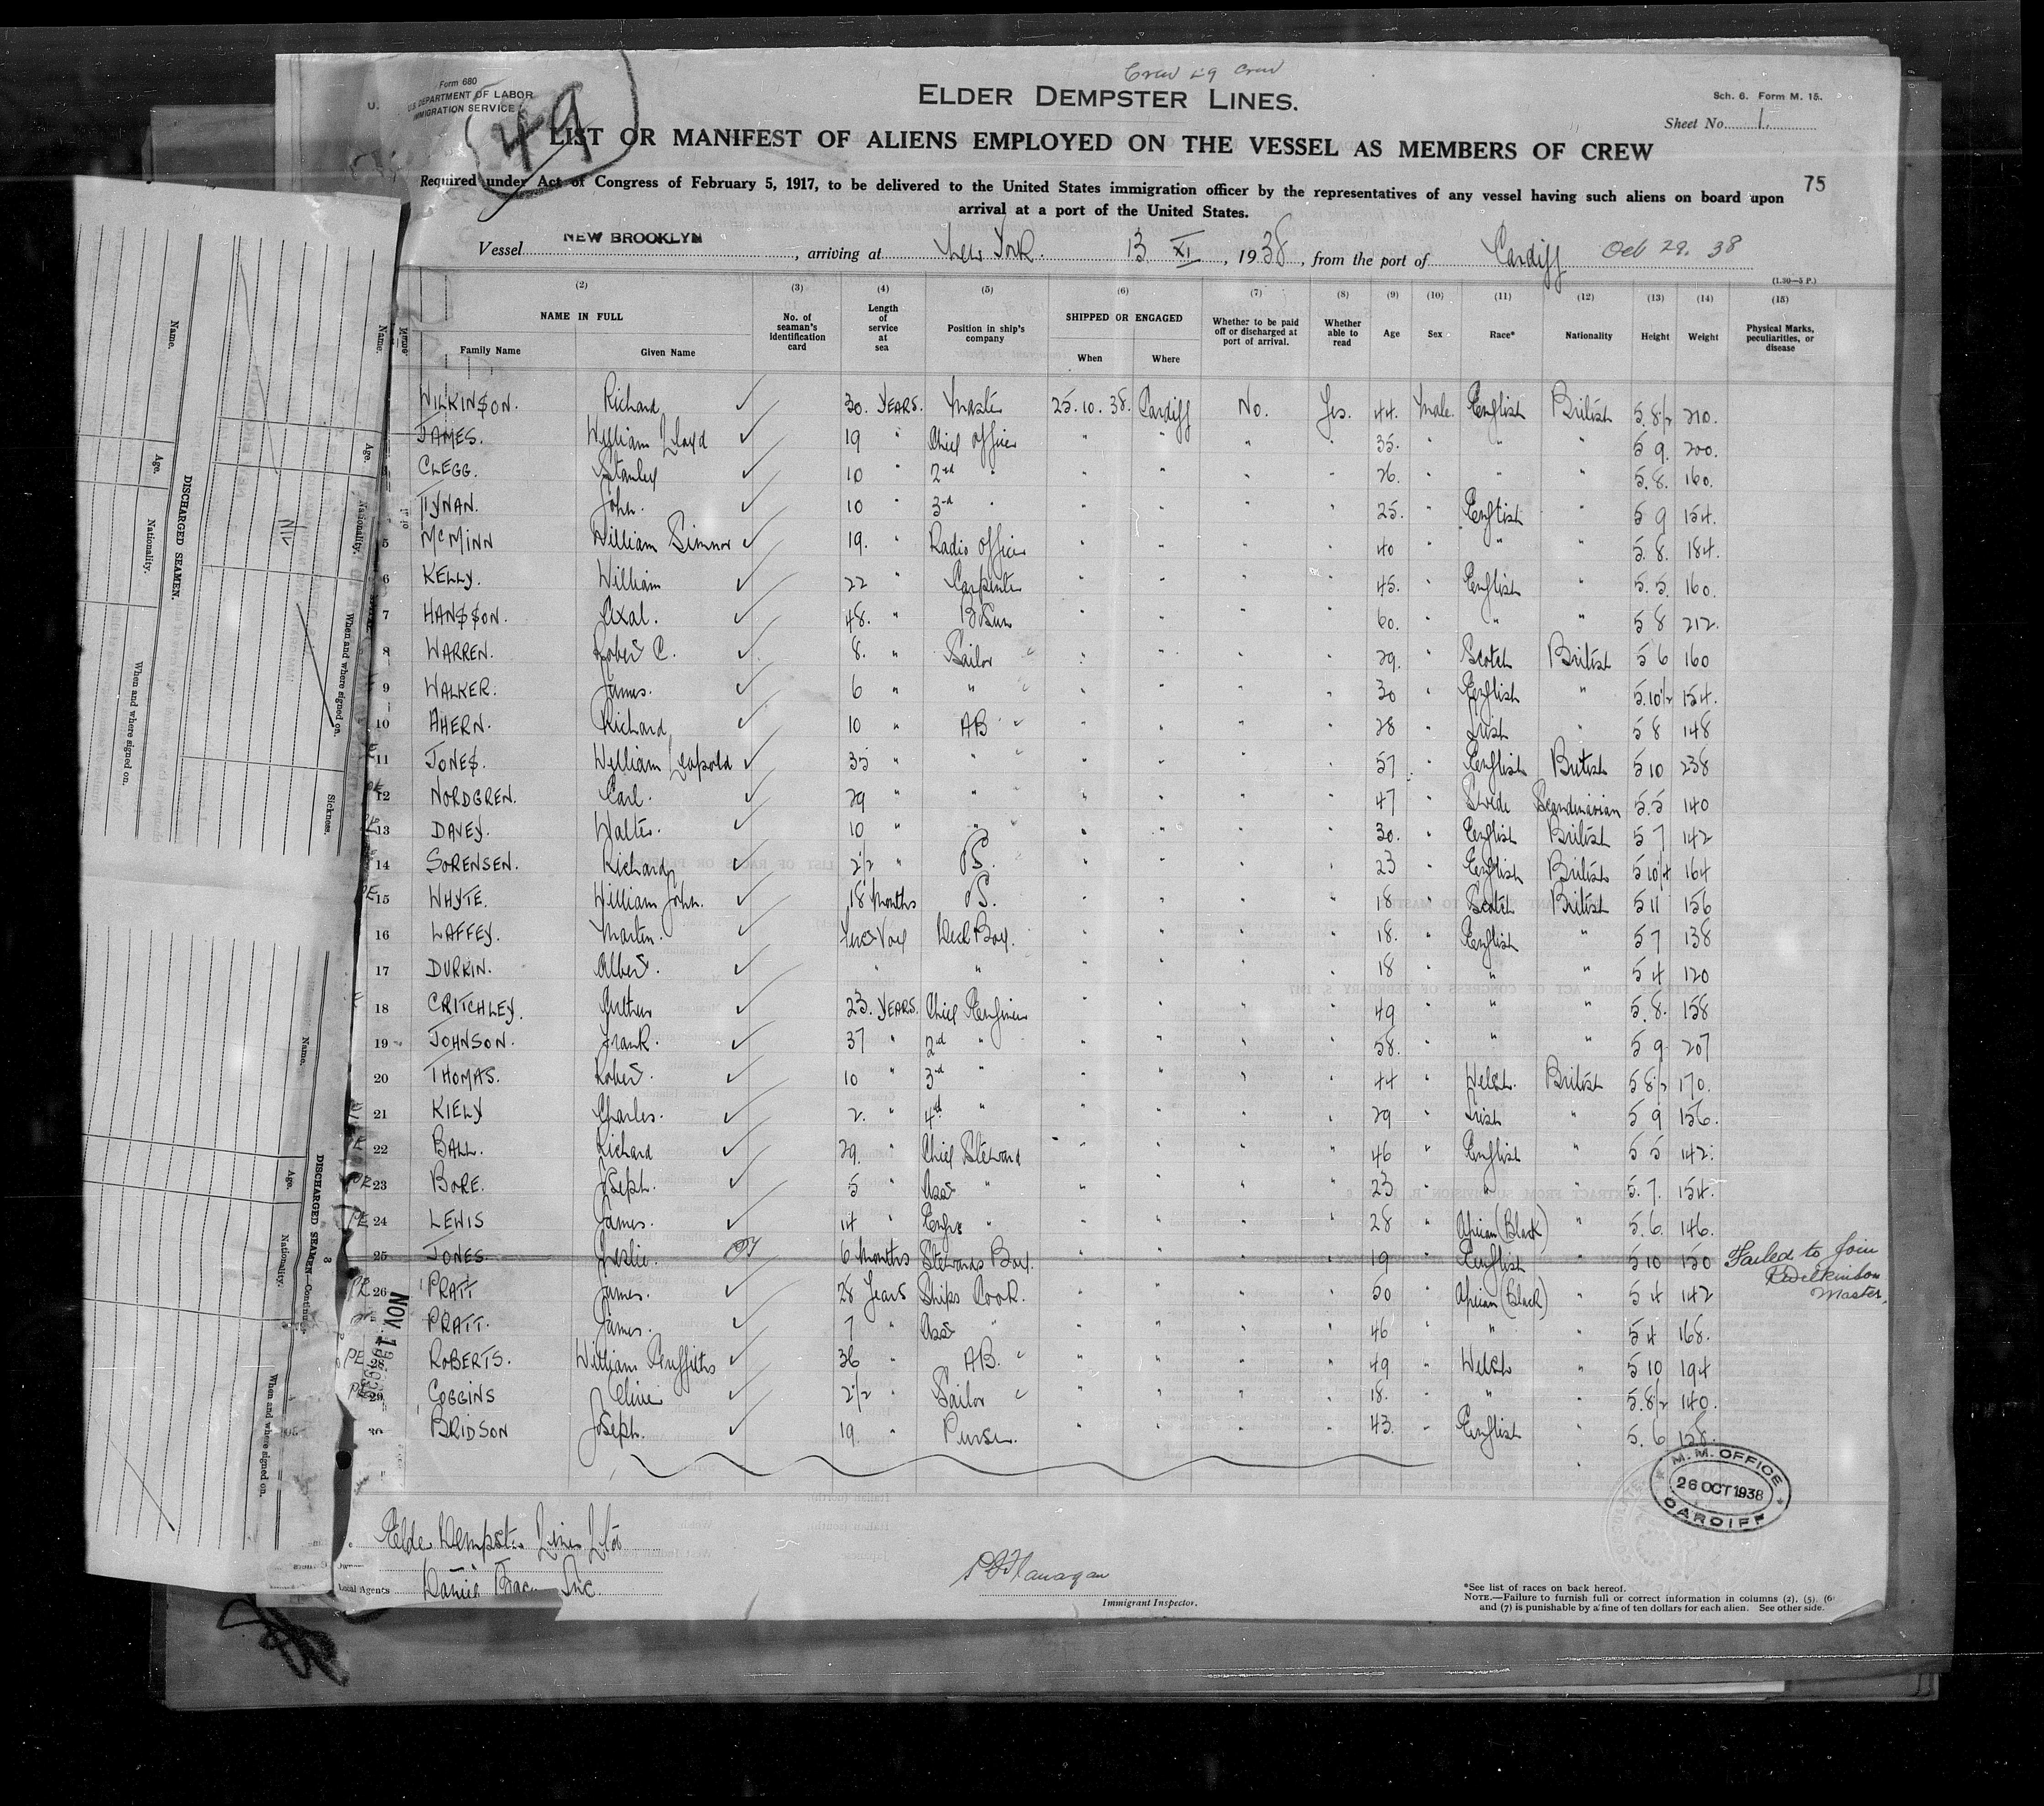 Crew Crew
Form 680
U.S. DEPARTMENT OF LABOR
IMMIGRATION SERVICE
49
ELDER DEMPSTER LINES.
Sch. 6. Form M. 15.
Sheet No. 1.
LIST OR MANIFEST OF ALIENS EMPLOYED ON THE VESSEL AS MEMBERS OF CREW
75
Required under Act of Congress of February 5, 1917, to be delivered to the United States immigration officer by the representatives of any vessel having such aliens on board upon
arrival at a port of the United States.
Vessel NEW BROOKLYN, arriving at New York. 13 XI, 1938, from the port of Cardiff Oct 29. 38
(1.30—5 P.)
(2) (3) (4) (5) (6) (7) (8) (9) (10) (11) (12) (13) (14) (15)
NAME IN FULL Family Name Given Name No. of seaman's identification card Length of service at sea Position in ship's company SHIPPED OR ENGAGED When Where Whether to be paid off or discharged at port of arrival. Whether able to read Age Sex Race* Nationality Height Weight Physical Marks, peculiarities, or disease
WILKIN$ON. Richard ✓ 30. YEARS. Master 25.10.38. Cardiff No. Yes. 44. Male. English British 5.8½ 210.
JAMES. William Lloyd ✓ 19 " Chief Officer " " " 35. " " " 5 9. 200.
CLEGG. Stanley ✓ 10 " 2nd " " " " " 26. " " " 5.8. 160.
TYNAN. John. ✓ 10 " 3rd " " " " " 25. " English " 5 9 154.
5 McMINN William ✓ 19. " Radio Officer " " " " 40 " " " 5.8. 184.
6 KELLY. William ✓ 22 " Carpenter " " " " 45. " English " 5.5. 160.
7 HAN$$ON. Axal. ✓ 48. " BSun " " " " 60. " " " 5 8 212.
8 WARREN. Robert C. ✓ 8. " Sailor " " " " 29. " Scotch British 5 6 160
9 WALKER. James. ✓ 6 " " " " " " 30 " English " 5.10½ 154.
10 AHERN. Richard ✓ 10 " AB " " " " 28 " Irish " 5 8 148
11 JONE$. William Leopold ✓ 35 " " " " " " 57 " English British 5 10 238
12 NORDGREN. Carl. ✓ 29 " " " " " " 47 " Swede Scandinavian 5.5 140
13 DAVEY. Walter. ✓ 10 " " " " " " 30. " English British 5 7 142
14 SORENSEN. Richard ✓ 2½ " OS. " " " " 23 " English British 5 10¼ 164
15 WHYTE. William John. ✓ 18 Months OS. " " " " 18 " Scotch British 5 11 156
16 LAFFEY. Martin. ✓ First Voy Deck Boy. " " " " 18. " English " 5 7 138
17 DURKIN. Albert. ✓ " " " " " " 18 " " " 5 4 120
18 CRITCHLEY. Arthur ✓ 23. YEARS. Chief Engineer " " " " 49 " " " 5.8. 158
19 JOHNSON. Frank. ✓ 37 " 2nd " " " " " 58. " " " 5 9 207
20 THOMAS. Robert. ✓ 10 " 3rd " " " " " 44 " Welsh. British 5 8½ 170.
21 KIELY Charles. ✓ 2. " 4th " " " " " 29 " Irish " 5 9 156.
22 BALL. Richard ✓ 29. " Chief Steward " " " " 46 " English " 5 5 142.
23 BORE. Joseph. ✓ 5 " Asst " " " " " 23 " " " 5.7. 154.
PE 24 LEWIS James. ✓ 14 " Engrs " " " " " 28 " African (Black) " 5.6. 146.
25 JONES. Leslie. 6 Months Stewards Boy. " " " " 19 " English " 5 10 150 Failed to Join
RWilkinson
Master.
PE 26 PRATT James. ✓ 28 Years Ships Cook. " " " 50 " African (Black) " 5 4 142
PRATT. James. ✓ 7 " Asst " " " " " 46 " " " 5 4 168.
PE 28 ROBERTS. William Griffiths ✓ 36 " AB. " " " " 49 " Welsh " 5 10 194
PE 29 COGGINS Clive ✓ 2½ " Sailor " " " " 18. " " " 5.8½ 140.
30 BRIDSON Joseph. ✓ 19. " Purser. " " " " 43. " English " 5.6 158.
M. M. OFFICE
26 OCT 1938
CARDIFF
Elder Dempster Lines Ltd
Local Agents Daniel Inc.
Flanagan
Immigrant Inspector.
*See list of races on back hereof.
NOTE.—Failure to furnish full or correct information in columns (2), (5), (6)
and (7) is punishable by a fine of ten dollars for each alien. See other side.
DISCHARGED SEAMEN.
Name. Age. Nationality. When and where signed on.
Name. Age. Nationality. When and where signed on. Sickness.
Nil
DISCHARGED SEAMEN—Continued.
Name. Age. Nationality. When and where signed on.
NOV 1